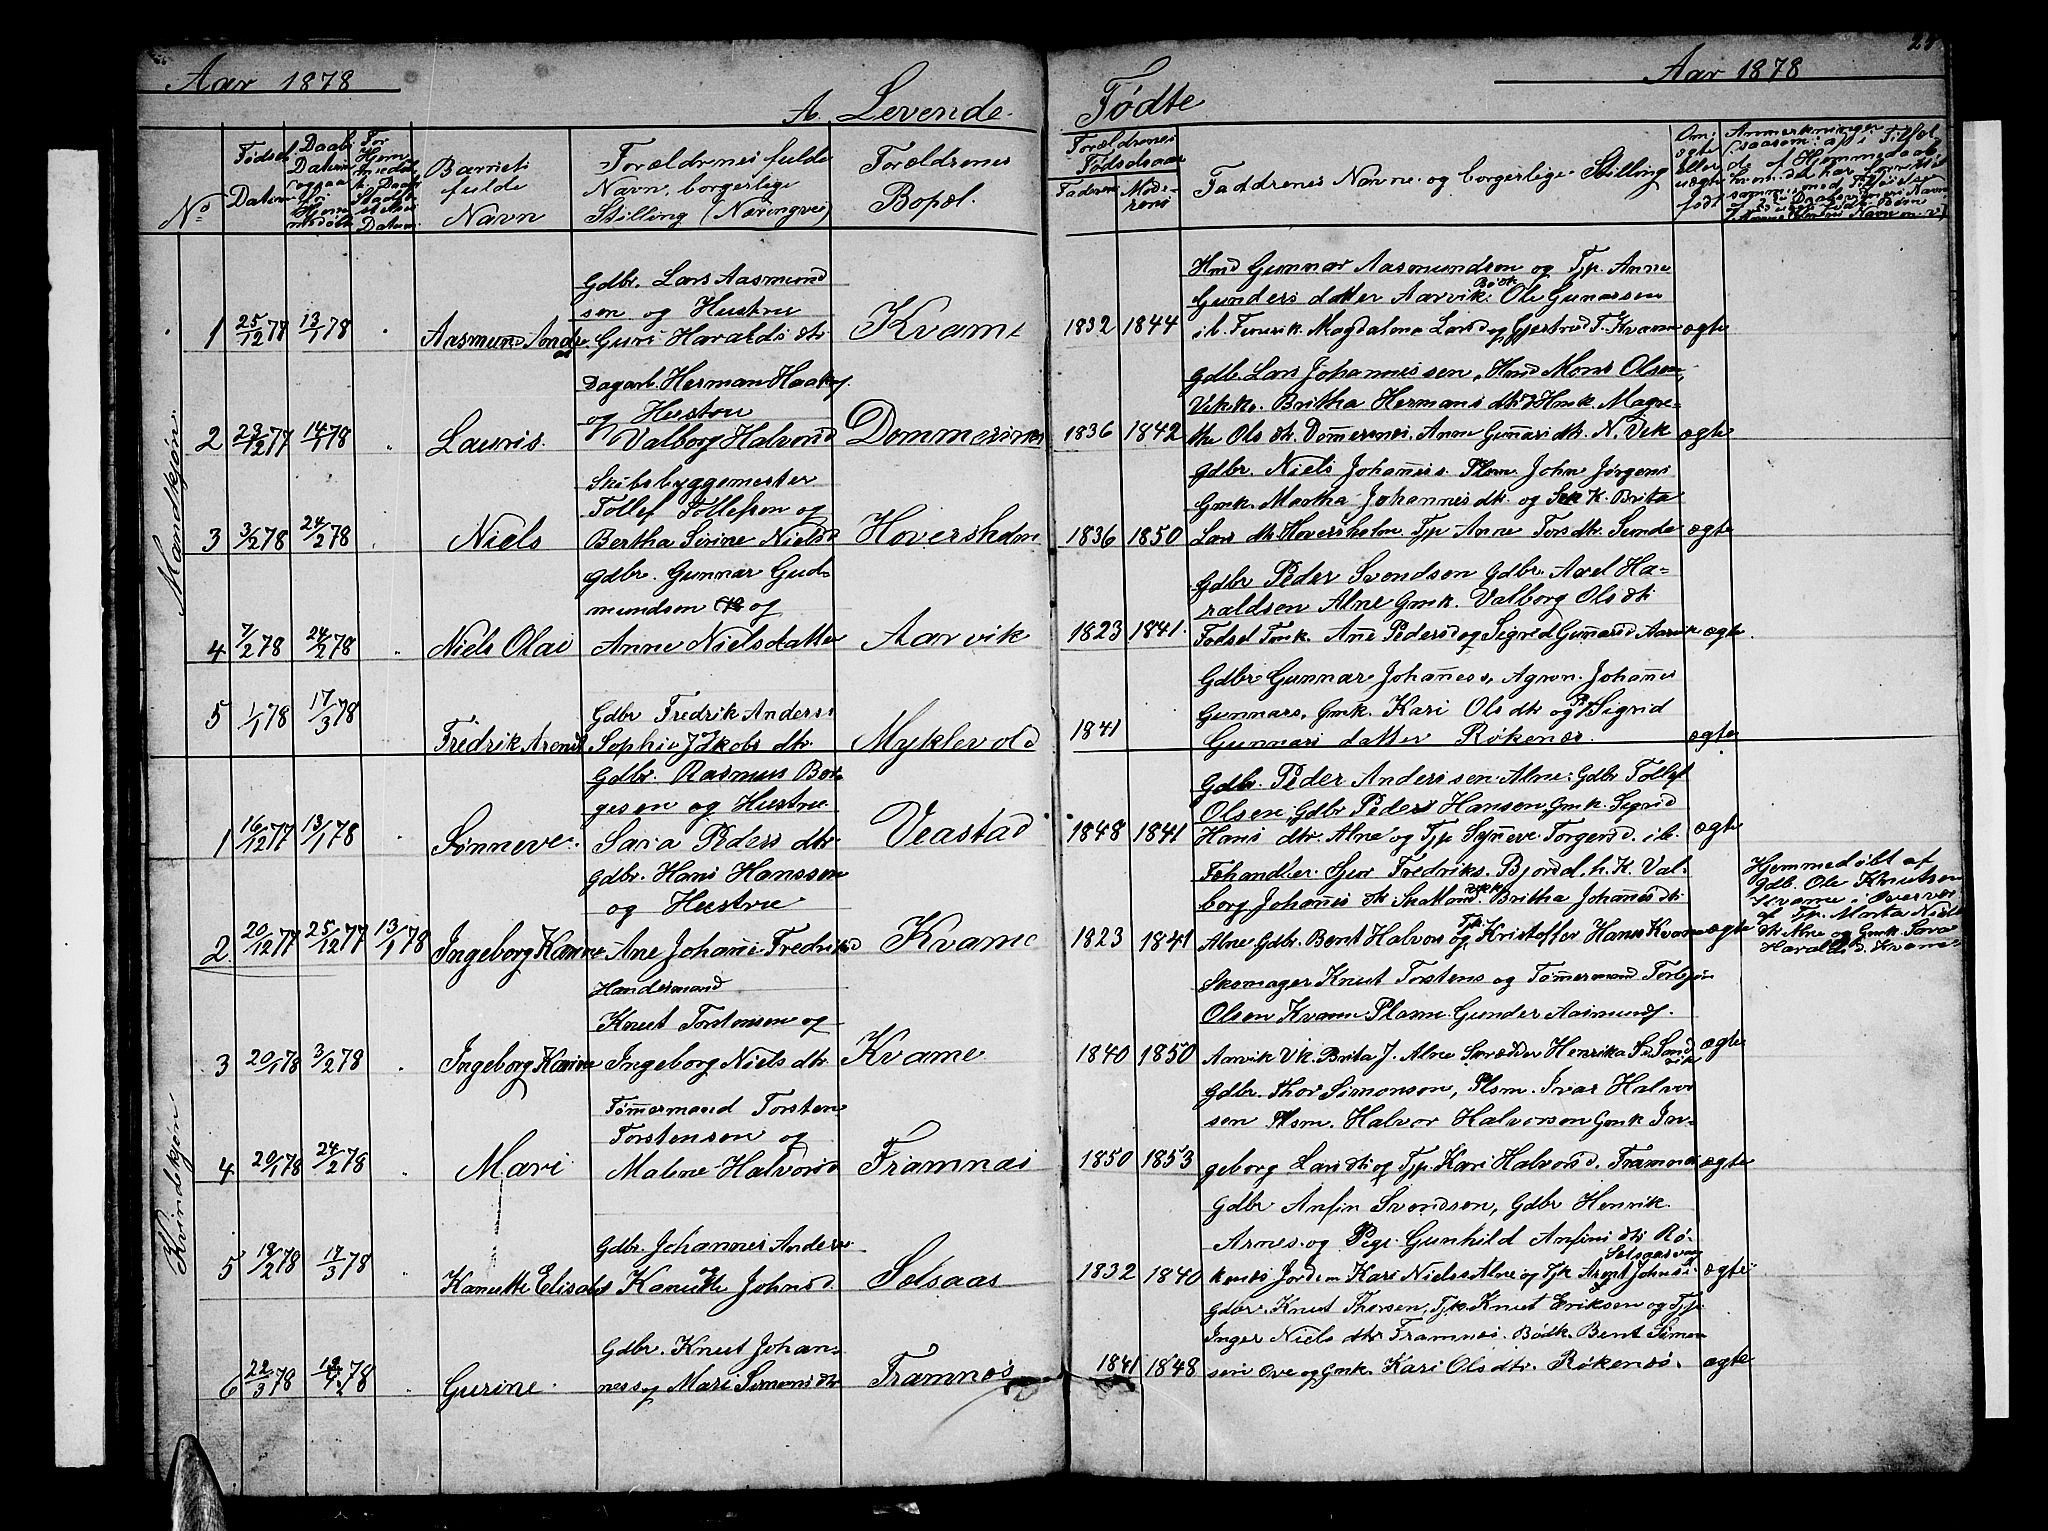 Aar 1878
A. Levende
Fødte
Aar 1878
No
Fødsel
Datum
Daabs
Datum
Barnets
fulde
Navn
Forældrenes fulde
Navn, borgerlige
Stilling (Næringsvei)
Forældrenes
Bopæl.
Forældrenes
Fødselsaar
Faderens
Moderens
Faddrenes Navne og borgerlige Stilling
Om
ægte
eller
uægte
født
Anmerkninger
Mandkjøn.
1 25/12 77 13/1 78 Aasmund Andreas
Gdbr. Lars Aasmund
sen og Hustru
Guri Haralds dtr
Kvame
1832 1844
Hmd Gunnar Aasmundsen og Tjp. Anne
Gunders datter Aarvik: Ole Gunarsen
i b. Fenrik. Magdalena Larsd og Gjertrud T. Kvame
ægte
2 23/12 77 14/1 78 Lauris.
Dagarb. Herman Haak
og Hustru
Valborg Halvorsd
Dommersnes
1836 1842
Gdb. Lars Johannessen, Hmd Mons Olsen,
Vikke. Britha Hermans dtr Hmk. Magre-
the Ols dtr. Domersnes. Anne Gunars dtr. N. Vik
ægte
3 3/2 78 24/2 78 Niels
Skibsbyggemester
Tollef Tollefsen og
Bertha Serine Nielsd
Hoversholm
1836 1850
Gdbr. Niels Johannes. Plsm. John Jørgens
Gmk. Martha Johannes dtr og Sek K. Brita
Lars dtr Hoversholm. Tjp Anne Tors dtr. Sunde
ægte
4 7/2 78 24/2 78 Niels Olai
Gdbr. Gunnar Gud-
mundsen og
Anne Nielsdatter
Aarvik
1823 1841.
Gdbr Peder Svendsen Gdbr. Axel Ha-
raldsen Alne Gmk. Valborg Ols dtr
Fodsel Tmk. Ane Pedersd og Sigrid Gunarsd Aarvik
ægte.
5 1/1 78 17/3 78 Fredrik Arent
Gdbr Fredrik Anders
Sophie J Jkobs dtr.
Myklevold
1841
Gdbr Gunnar Johaness, Agron. Johanes
Gunnars, Gmk. Kari Ols dtr og P. Sigrid
Gunnars datter Røkenes.
ægte
Kvindekjøn
1 16/12 77 13/1 78 Sønneve.
Gdbr. Rasmus Bør-
gesen og Hustru
Sara Peders dtr
Veastad
1848 1841
Gdbr. Peder Andersen Alne: Gdbr Tollef
Olsen, Gdbr Peders Hansen, Gmk. Sigrid
Hans dtr. Alne og Tjp Synneve Torgersd. i b.
ægte
2 20/12 77 25/12 77 13/1 78 Ingeborg Karine
Gdbr. Hans Hanssen
og Hustru
Ane Johane Fredriksd
Kvame
1823 1841
Fehandler Sjur Fredriks. Bjordal. h. K. Val-
borg Johanes dtr Skatland. Britha Johanes dtr
Alne Gdbr. Bent Halvors og Kristoffer Hans Kvame
ægte
Hjemmedøbt af
Gdb. Ole Knutsen
Kvame. Overvær
af Tjp. Marta Niels
dtr Alne og Gmk. Sara
Haraldsd. Kvame
3 20/1 78 3/2 78 Ingeborg Karine
Handermand
Knut Torstensen og
Ingeborg Niels dtr
Kvame
1840 1850
Skomager Knut Torstens og Tømermand Torbjør
Olsen Kvame Plasm. Gunder Aasmunds.
Aarvik Vk. Brita J. Alne Skrædder Henrika F. Sandvik
ægte
4 20/1 78 24/2 78 Mari
Tømermand Torsten
Torstensen og
Malene Halvorsd
Framnas
1850 1853
Gdbr. Thor Simonson, Plsm. Ivar Halvor
sen Plsm. Halvor Halvorsen Gmk In-
geborg Lars dtr og Tjp. Kari Halvorsd. Framnes
ægte
5 18/2 78 17/3 78 Kanutte Elisabet
Gdbr. Johannes Anders
Kanutte Johnsd
Sølsaas
1832 1840
Gdbr Anfin Svendsen, Gdbr Henrik
Arnes. og Pige Gunhild Anfins dtr Rø-
kenes Jordem Kari Niels Alne og Tjk Arent Johns
ægte
6 22/3 78 78 Gurine.
Gdbr. Knut Johan-
nes og Mari Simons dtr
Framnes
1841 1848
Gdbr. Knut Thorsen, Tjk. Knut Eriksen og Tjp
Inger Niels dtr Framnes. Bødk. Bent Simon
sen Ove og Gmk. Kari Ols dtr. Røkenes.
ægte